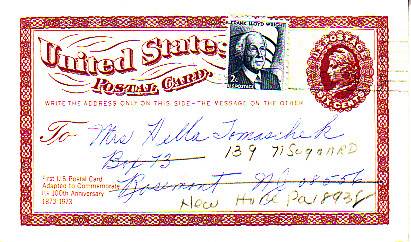 FRANK LLOYD WRIGHT
2¢
U.S. POSTAGE
United States
POSTAL CARD.
WRITE THE ADDRESS ONLY ON THIS SIDE - THE MESSAGE ON THE OTHER
To Mrs Hella Tomaschek
Box 73 139 N
First U.S. Postal Card
Adapted to Commemorate
Its 100th Anniversary
1873-1973
Rosemont NJ 08556
New Hope Pa 18938